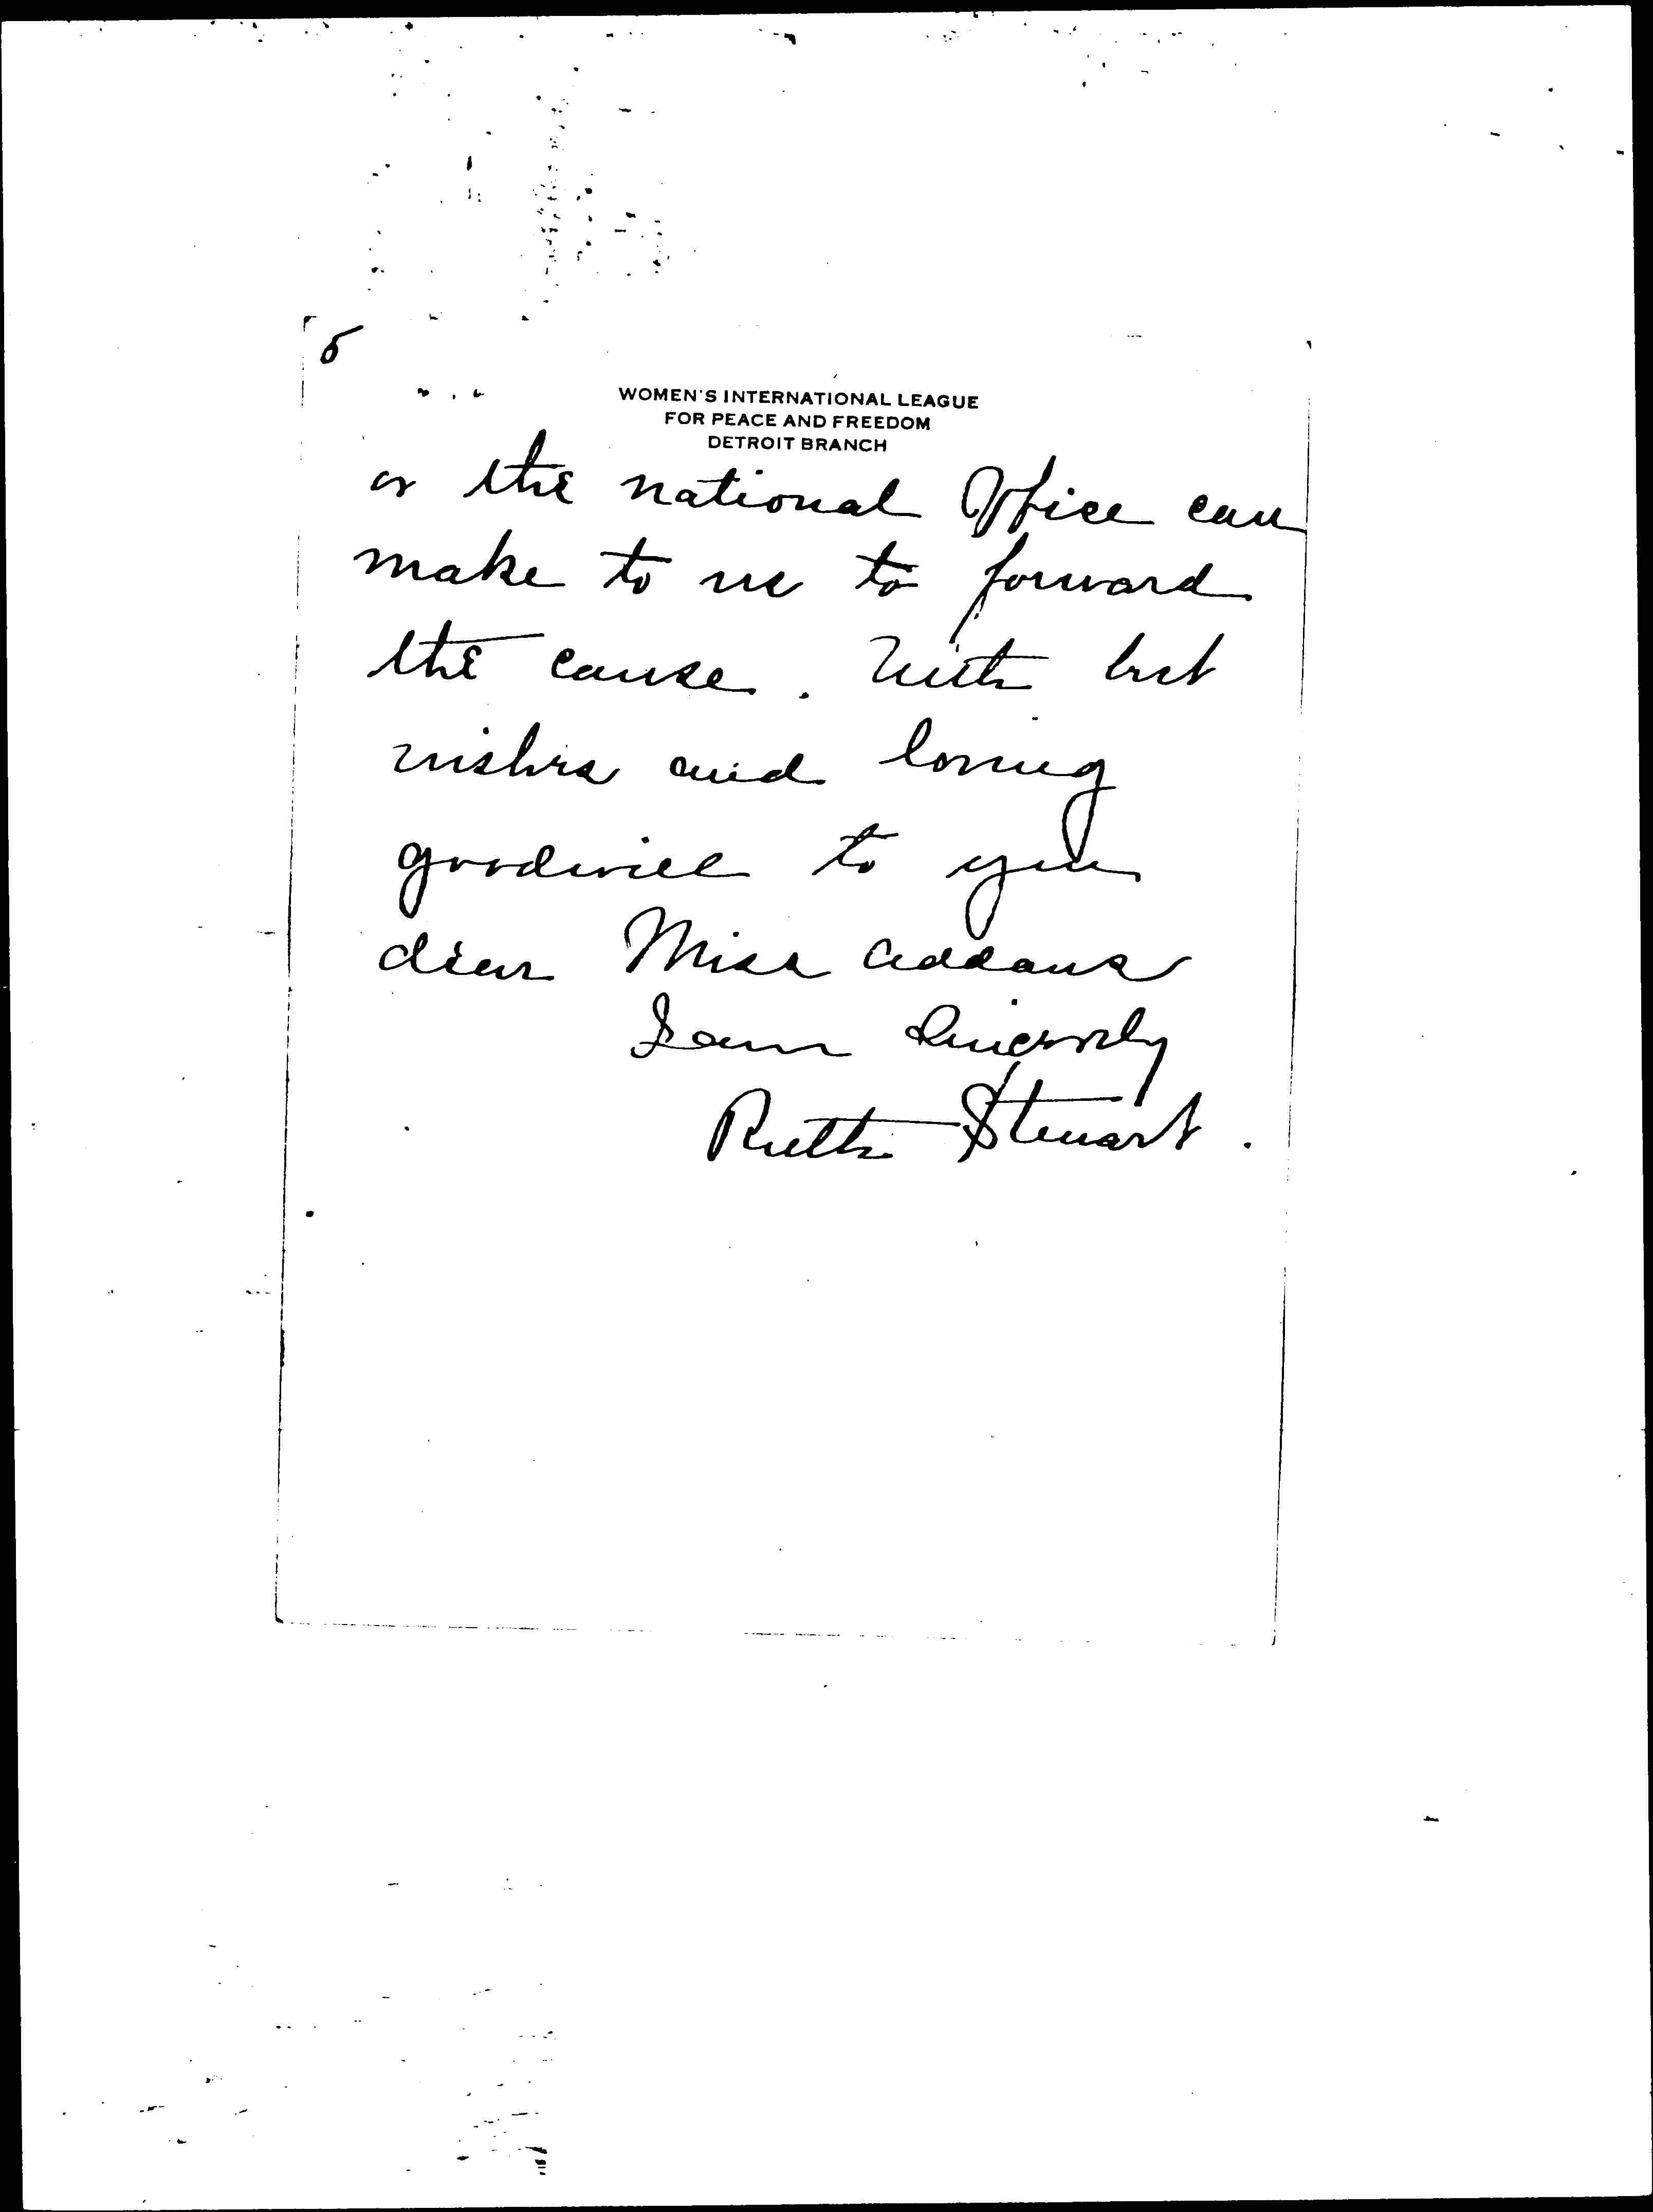 5
WOMEN'S INTERNATIONAL LEAGUE
FOR PEACE AND FREEDOM
DETROIT BRANCH
or the national Office can
make to us to forward
the cause. With best
wishes and loving
goodwill to you
dear Miss Addams
I am Sincerely
Ruth Stewart.